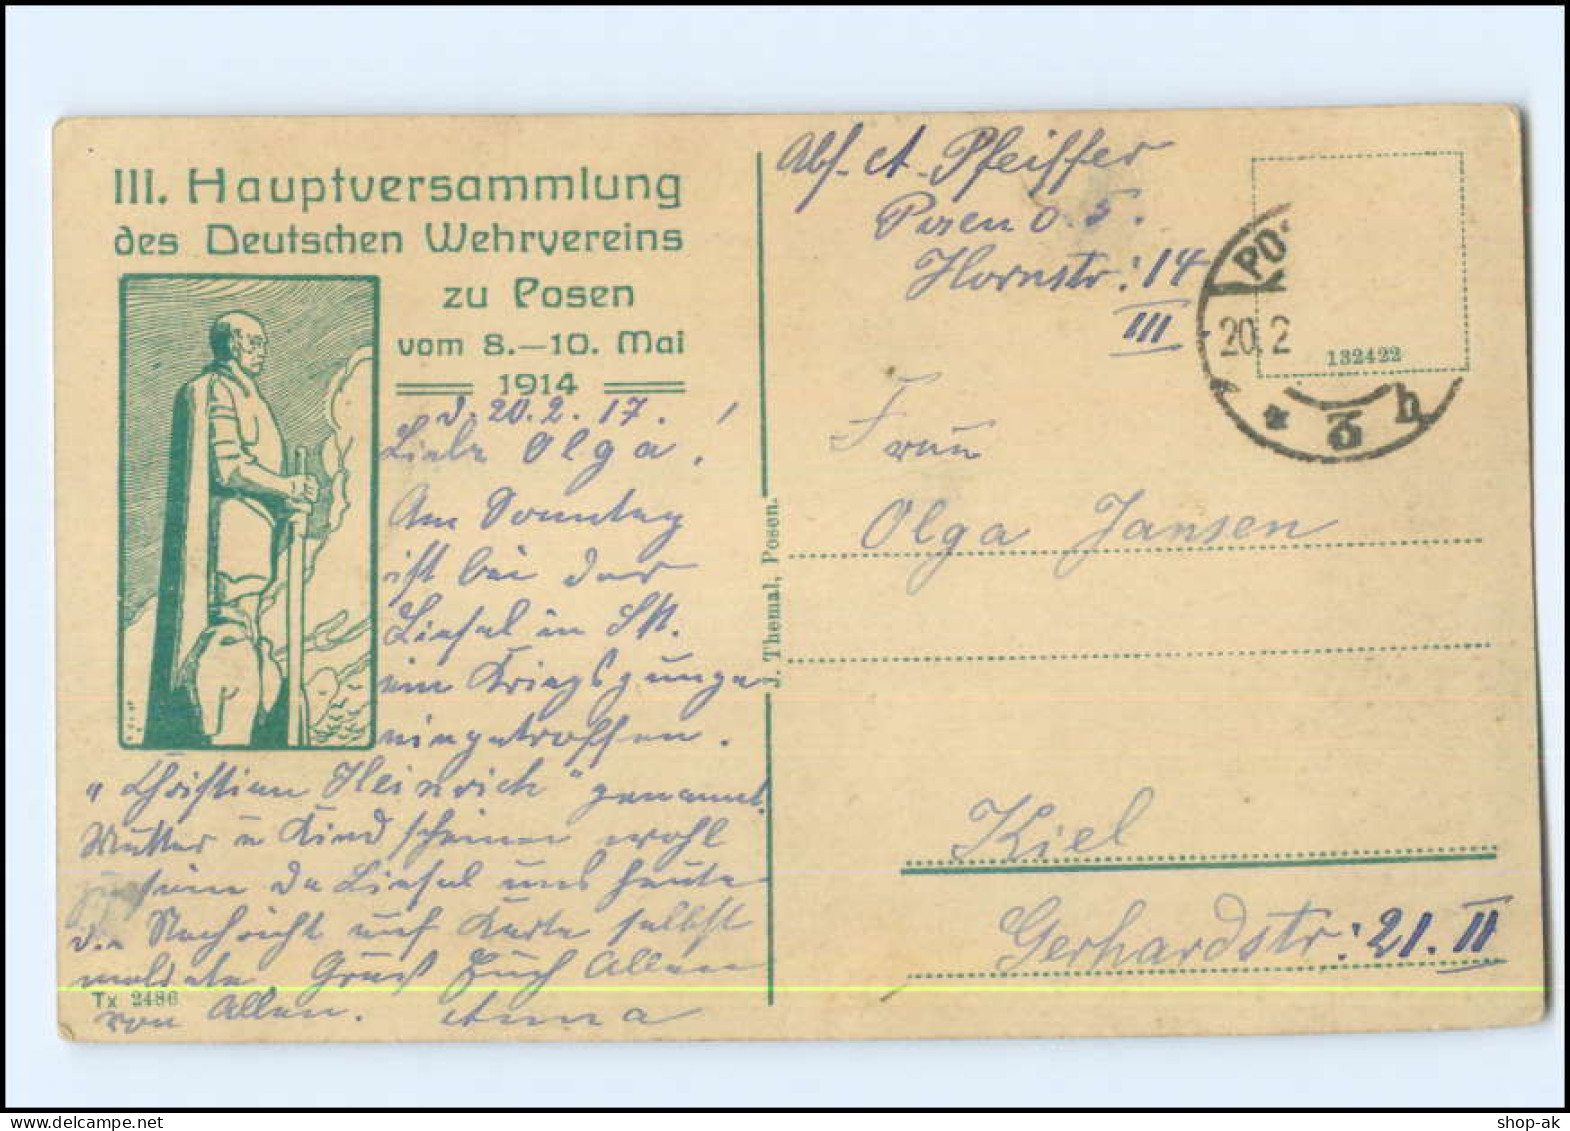 III. Hauptversammlung
des Deutschen Wehrvereins
zu Posen
vom 8.—10. Mai
1914
d. 20.2.17.
Liebe Olga!
Am Sonntag
ist bei der
Liesel in
ein Kriegsjunge
eingetroffen.
"Christian Heinrich" genannt.
Mutter u Kind scheinen wohl
sein da Liesel uns heute
die Nachricht auf Karte selbst
meldete. Gruß Euch Allen
von Allen. Anna
Tx 2486
J. Themal, Posen.
Abs. A. Pfeiffer
Posen O. 5.
Hornstr: 14
III.
132422
PO
20. 2
Frau
Olga Jansen
Kiel
Gerhardstr: 21. II
shop-ak